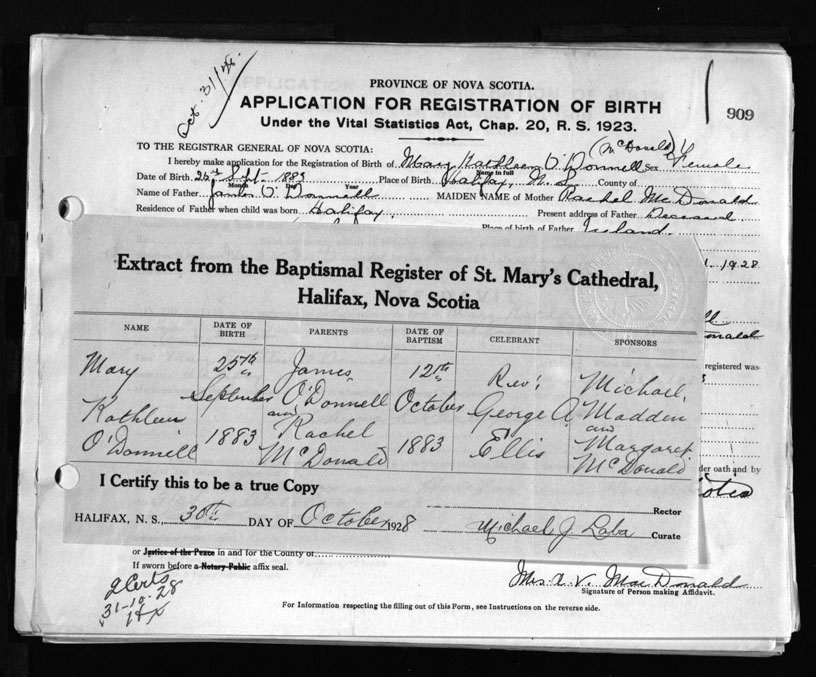 Oct. 31/28.
PROVINCE OF NOVA SCOTIA.
909
APPLICATION FOR REGISTRATION OF BIRTH
Under the Vital Statistics Act, Chap. 20, R. S. 1923.
TO THE REGISTRAR GENERAL OF NOVA SCOTIA:
(McDonald)
I hereby make application for the Registration of Birth of Mary Kathleen O'Donnell Sex Female
Name in full
Date of Birth 25th Sept. 1883 Place of Birth Halifax, N. S. County of
Month Day Year
Name of Father James O'Donnell MAIDEN NAME of Mother Rachel McDonald
Residence of Father when child was born Halifax. Present address of Father Deceased
Place of birth of Father Ireland.
1928
registered was
der oath and by
Extract from the Baptismal Register of St. Mary's Cathedral,
Halifax, Nova Scotia
NAME DATE OF BIRTH PARENTS DATE OF BAPTISM CELEBRANT SPONSORS
Mary 25th James 12th Rev. Michael
Kathleen September O'Donnell October George A. Madden
and and
O'Donnell 1883 Rachel 1883 Ellis Margaret
McDonald McDonald
I Certify this to be a true Copy
Rector
HALIFAX, N. S., 30th DAY OF October 1928 Michael J. Laba Curate
or Justice of the Peace in and for the County of
If sworn before a Notary Public affix seal.
2 Certs
31-10-28
Mrs. A. V. MacDonald
Signature of Person making Affidavit.
For Information respecting the filling out of this Form, see Instructions on the reverse side.